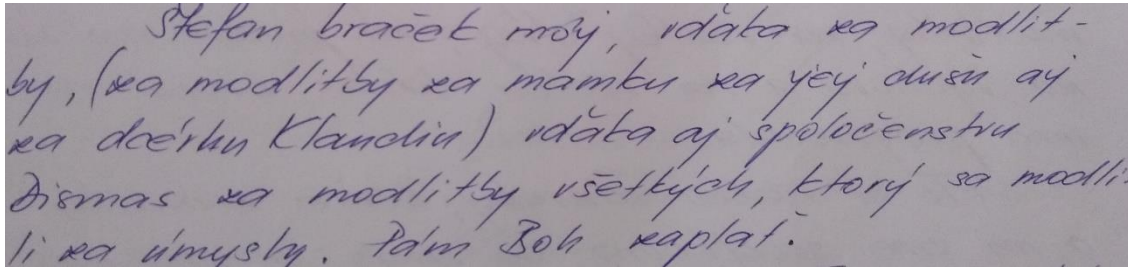 Štefan braček môj, vďaka za modlit-
by, (za modlitby za mamku za jej dušu aj
za dcérku Klaudiu) vďaka aj spoločenstvu
Dismas za modlitby všetkých, ktorý sa modli-
li za úmysly. Pám Boh zaplať.